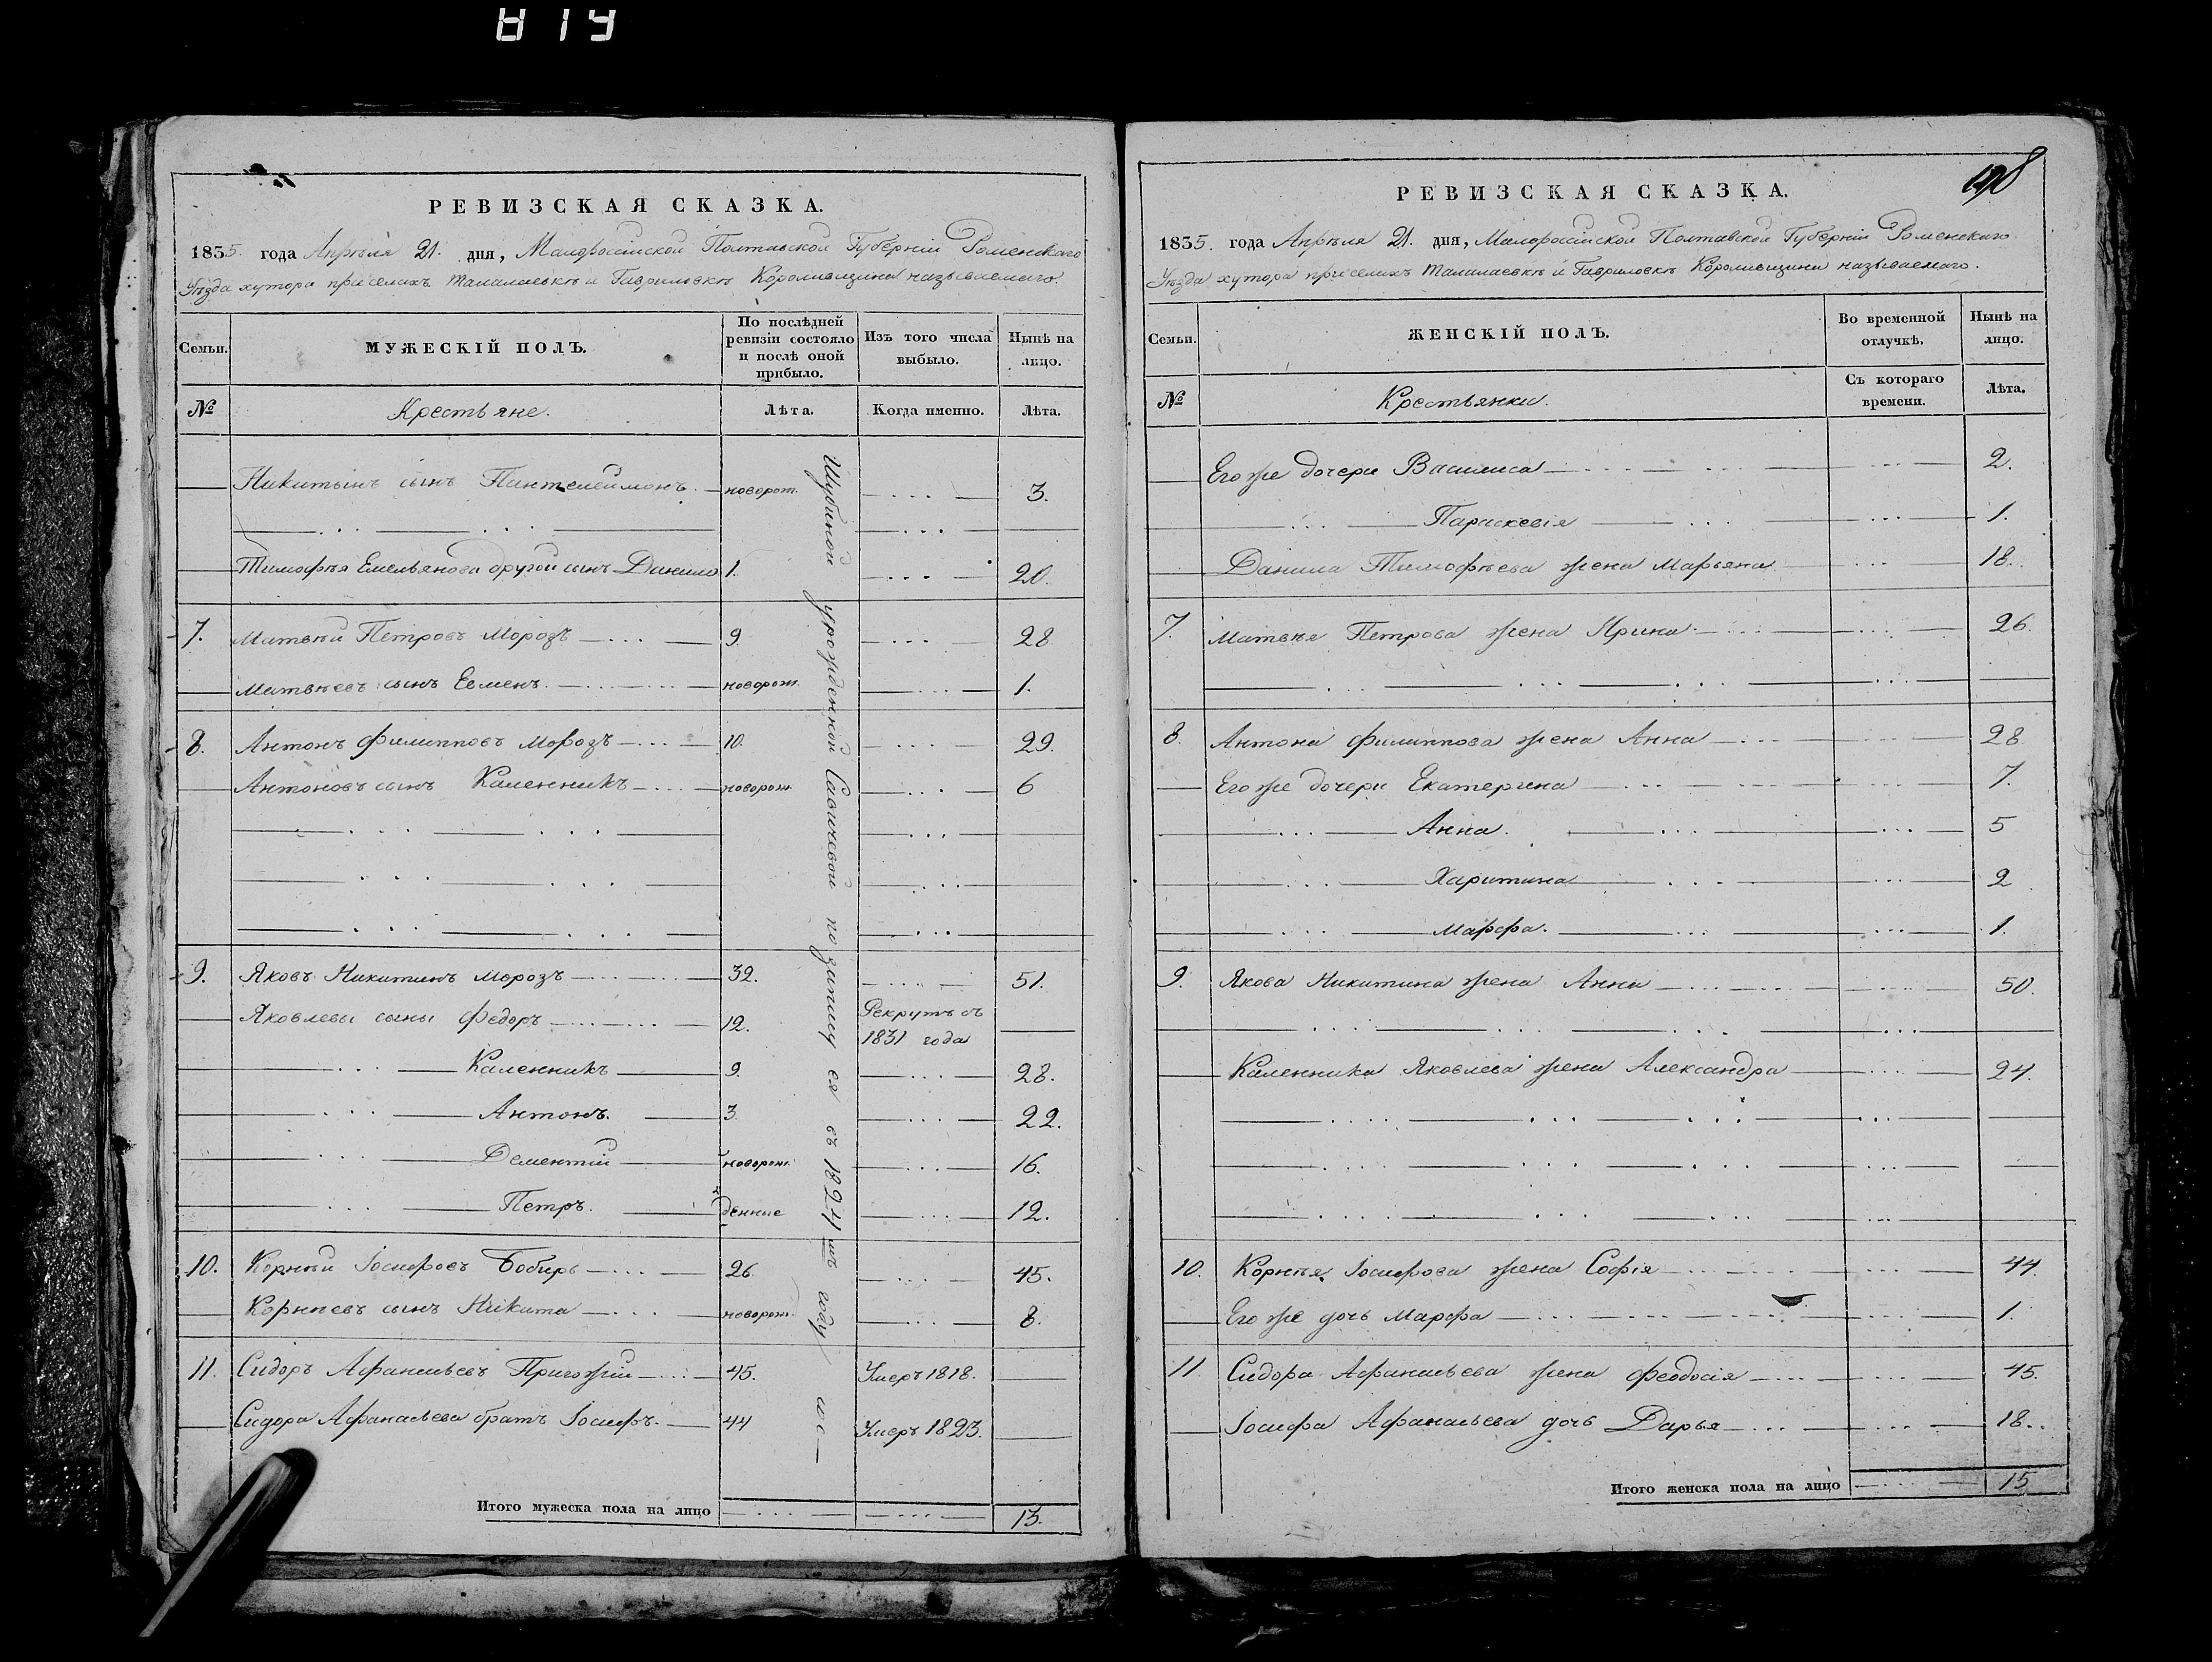 819
РЕВИЗСКАЯ СКАЗКА.
1835. года Апрѣля 21. дня, Малоросiйской Полтавской Губернiи Роменскаго
Уѣзда хутора при селахъ Талалаевкѣ и Гавриловкѣ Короливщина называемаго.
Семьи.
МУЖЕСКІЙ ПОЛЪ.
По послѣдней ревизіи состояло и послѣ оной прибыло.
Изъ того числа выбыло.
Нынѣ на лицо.
№ Крестьяне. Лѣта. Когда именно. Лѣта.
Никитинъ сынъ Пантелеймонъ новорож. 3.
Тимофѣя Емельянова другой сынъ Данило 1. 20.
7. Матвѣй Петровъ Морозъ 9. 28.
Матвѣевъ сынъ Евменъ новорож. 1.
8. Антонъ Филипповъ Морозъ 10. 29.
Антоновъ сынъ Каленникъ новорож. 6
9. Яковъ Никитинъ Морозъ 32. 51.
Яковлевы сыны Федоръ 12. Рекрутъ съ 1831 года
Каленникъ 9. 28.
Антонъ. 3. 22.
Дементiй новорож 16.
Петръ. денные 12.
10. Корнѣй Iосифовъ Бобирь 26. 45.
Корнѣевъ сынъ Никита новорож. 8.
11. Сидоръ Афанасьевъ Пригожiй 45. Умеръ 1818.
Сидора Афанасьева братъ Iосифъ. 44 Умеръ 1823.
Итого мужеска пола на лицо 13.
Шубиной урожденной Савичевой по запису ея съ 1824мъ году
198
РЕВИЗСКАЯ СКАЗКА.
1835. года Апрѣля 21. дня, Малоросiйской Полтавской Губернiи Роменскаго
Уѣзда хутора при селахъ Талалаевкѣ и Гавриловкѣ Короливщини называемаго.
Семьи.
ЖЕНСКІЙ ПОЛЪ.
Во временной отлучкѣ.
Нынѣ на лицо.
№ Крестьянки. Съ котораго времени. Лѣта.
Его же дочери Василиса 2.
Параскевiя 1.
Данила Тимофѣева жена Марьяна 18.
7. Матвѣя Петрова жена Ирина 26.
8. Антона Филиппова жена Анна 28
Его же дочери Екатерина 7.
Анна. 5
Харитина 2
Марфа. 1.
9. Якова Никитина жена Анна 50.
Каленника Яковлева жена Александра 24.
10. Корнѣя Iосифова жена Софiя 44.
Его же дочь Марфа 1.
11. Сидора Афанасьева жена Феодосiя 45.
Iосифа Афанасьева дочь Дарья 18.
Итого женска пола на лицо 15